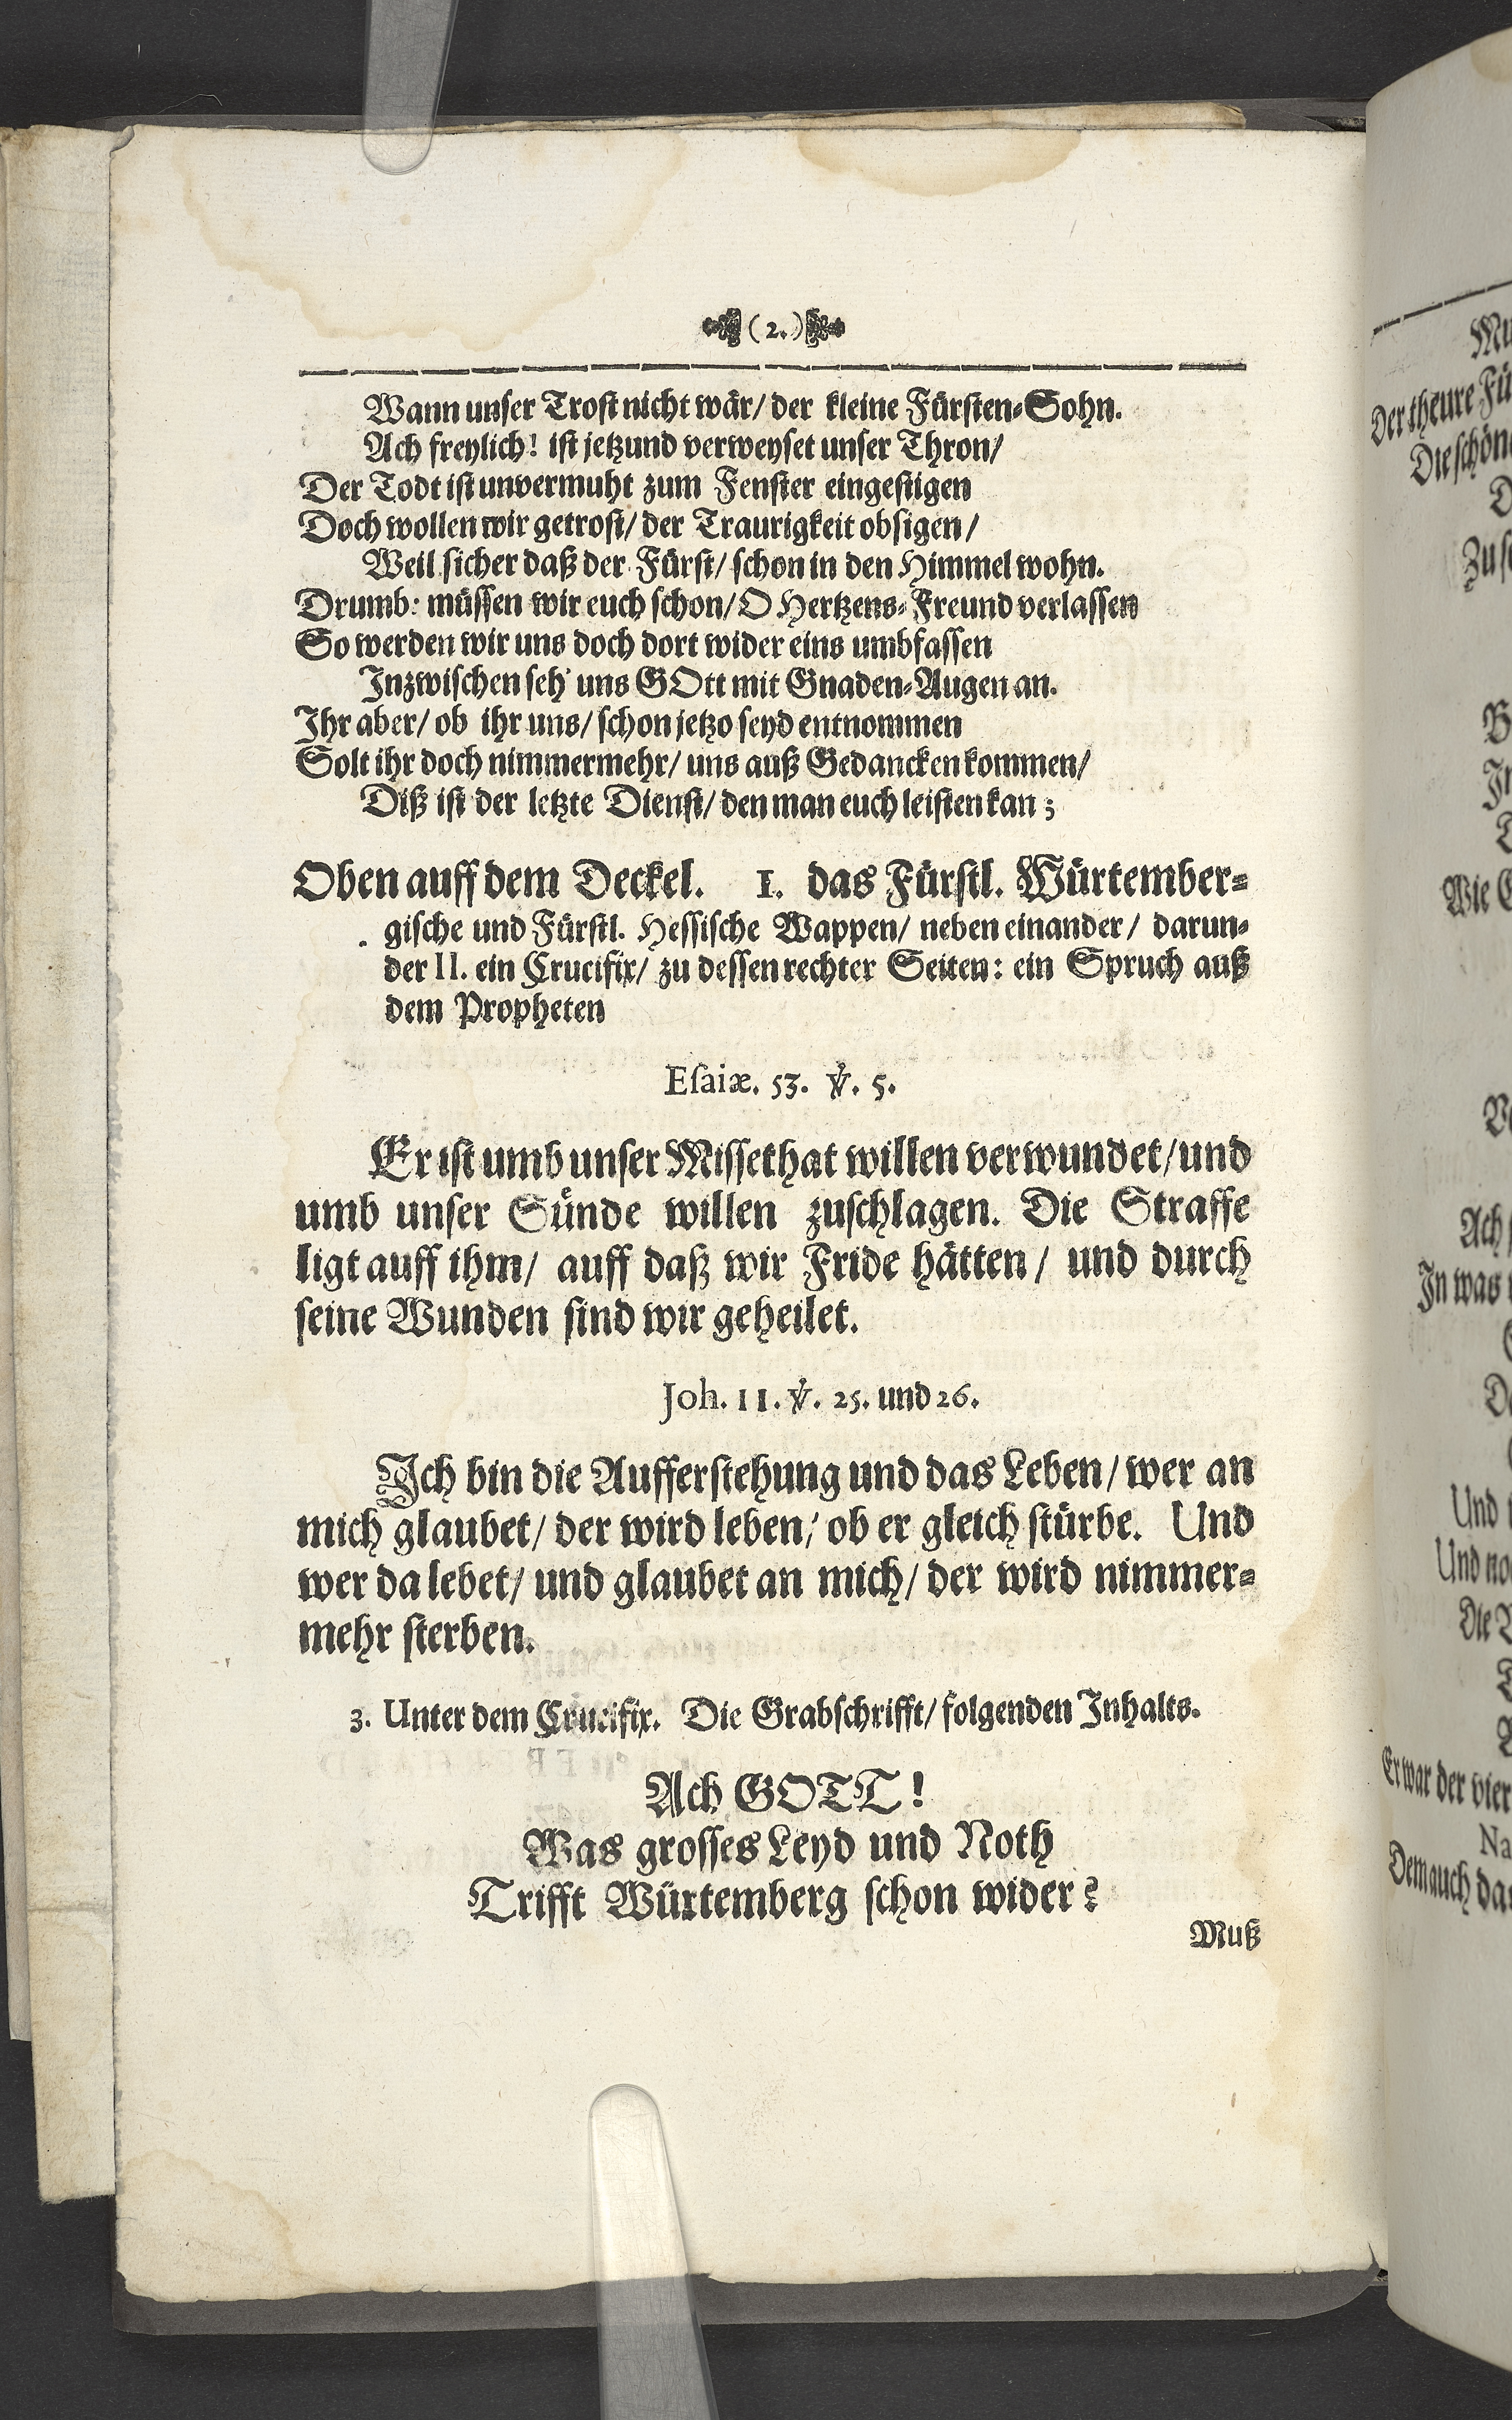 (2.)
Wann unser Trost nicht wär/ der kleine Fürsten-Sohn.
Ach freylich! ist jetzund verweyset unser Thron/
Der Todt ist unvermuht zum Fenster eingestigen
Doch wollen wir getrost/ der Traurigkeit obsigen/
Weil sicher daß der Fürst/ schon in den Himmel wohn.
Drumb: müssen wir euch schon/ O Hertzens-Freund verlassen
So werden wir uns doch dort wider eins umbfassen
Inzwischen seh' uns GOtt mit Gnaden-Augen an.
Ihr aber/ ob ihr uns/ schon jetzo seyd entnommen
Solt ihr doch nimmermehr/ uns auß Gedancken kommen/
Diß ist der letzte Dienst/ den man euch leisten kan;
Oben auff dem Deckel. I. das Fürstl. Würtember-
gische und Fürstl. Hessische Wappen/ neben einander/ darun-
der II. ein Crucifix/ zu dessen rechter Seiten: ein Spruch auß
dem Propheten
Esaiæ. 53. ℣. 5.
Er ist umb unser Missethat willen verwundet/ und
umb unser Sünde willen zuschlagen. Die Straffe
ligt auff ihm/ auff daß wir Fride hätten/ und durch
seine Wunden sind wir geheilet.
Joh. 11. ℣. 25. und 26.
Ich bin die Aufferstehung und das Leben/ wer an
mich glaubet/ der wird leben/ ob er gleich stürbe. Und
wer da lebet/ und glaubet an mich/ der wird nimmer-
mehr sterben.
3. Unter dem Crucifix. Die Grabschrifft/ folgenden Inhalts.
Ach GOTT!
Was grosses Leyd und Noth
Trifft Würtemberg schon wider?
Muß
Der theure
Die schön
Wie
Ach
In was
Und
Und
Die
Er war der vier
Dem auch das